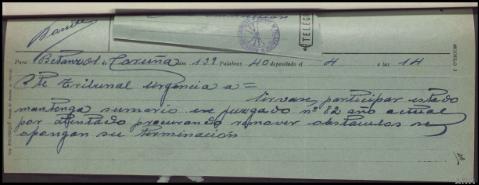 TELEG
Para Betanzos de Coruña núm 139 Palabras 40 depositado el 4 a las 14
Pte Tribunal Urgencia a =
Sirvase participar estado
mantenga sumario ese juzgado nº 82 año actual
por atentado procurando remover obstaculos se
opongan su terminación